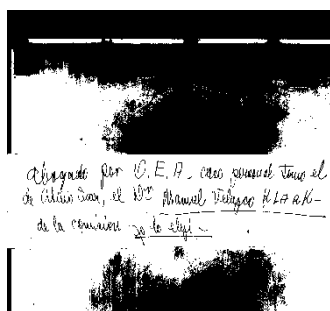 abogado por C.E.A. caso personal Tomo el
de Citius Dom, el Dr. Manuel Velazco KLARK-
de la comision yo lo elegi -